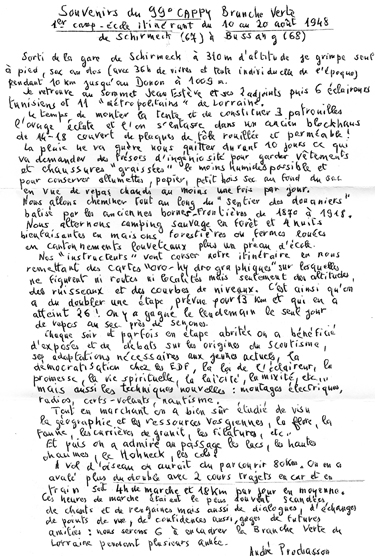 Souvenirs du 99e CAPPY Branche Verte
1er camp-école itinérant du 10 au 20 août 1948
de Schirmeck (67) à Bussang (68)
Sorti de la gare de Schirmeck à 310m d'altitude je grimpe seul
à pied, sac au dos (avec 36h de vivres et tente individuelle de l'époque)
pendant 10 km jusqu'au Donon à 1009 m.
Je retrouve au sommet Jean Estève et ses 2 adjoints puis 6 éclaireurs
tunisiens et 11 "métropolitains" de Lorraine.
Le temps de monter la tente et de constituer 3 patrouilles
l'orage éclate et l'on s'entasse dans un ancien blockhaus
de 14-18 couvert de plaques de tôle rouillée et perméable !
La pluie ne va guère nous quitter durant 10 jours ce qui
va demander des trésors d'ingéniosité pour garder vêtements
et chaussures "graissées" le moins humide possible et
pour conserver allumettes, papier, petit bois au fond du sac
en vue de repas chauds au moins une fois par jour.
Nous allons cheminer tout au long du "sentier des douaniers"
balisé par les anciennes bornes-frontières de 1870 à 1918.
Nous alternons camping sauvage en forêt et 4 nuits
bienfaisantes en maisons forestières ou fermes louées
en cantonnements louveteaux plus un préau d'école.
Nos "instructeurs" vont corser notre itinéraire en nous
remettant des cartes "oro-hydrographiques" sur lesquelles
ne figurent ni routes ni localités mais seulement des altitudes,
des ruisseaux et des courbes de niveaux. C'est ainsi qu'on
a du doubler une étape, prévue pour 13 km et qui en a
atteint 26 ! On y a gagné le lendemain le seul jour
de repos au sec près de Senones.
Chaque soir et parfois en étape abritée on a bénéficié
d'exposés et de débats sur les origines du scoutisme,
ses adaptations nécessaires aux jeunes actuels, la
démocratisation chez les EDF, la loi de l'éclaireur, la
promesse, la vie spirituelle, la laïcité, la mixité, etc...
mais aussi les techniques nouvelles : montages électriques,
radio, cerfs-volants, nautisme.
Tout en marchant on a bien sûr étudié de visu
la géographie et les ressources vosgiennes, la flore, la
faune, les carrières de granit, les filatures, etc..
Et puis on a admiré au passage les lacs, les hautes
chaumes, le Hohneck, les cols !
A vol d'oiseau on aurait du parcourir 80km. On en a
avalé plus du double avec 2 courts trajets en car et en
train soit 4h de marche et 18km par jour en moyenne.
Ces heures de marche étaient et peu souvent scandées
de chants et de rengaines mais aussi de dialogues, d'échanges
de points de vue, de confidences aussi, gages de futures
amitiés : nous serons 6 à encadrer la Branche Verte de
Lorraine pendant plusieurs année.
André Prochasson